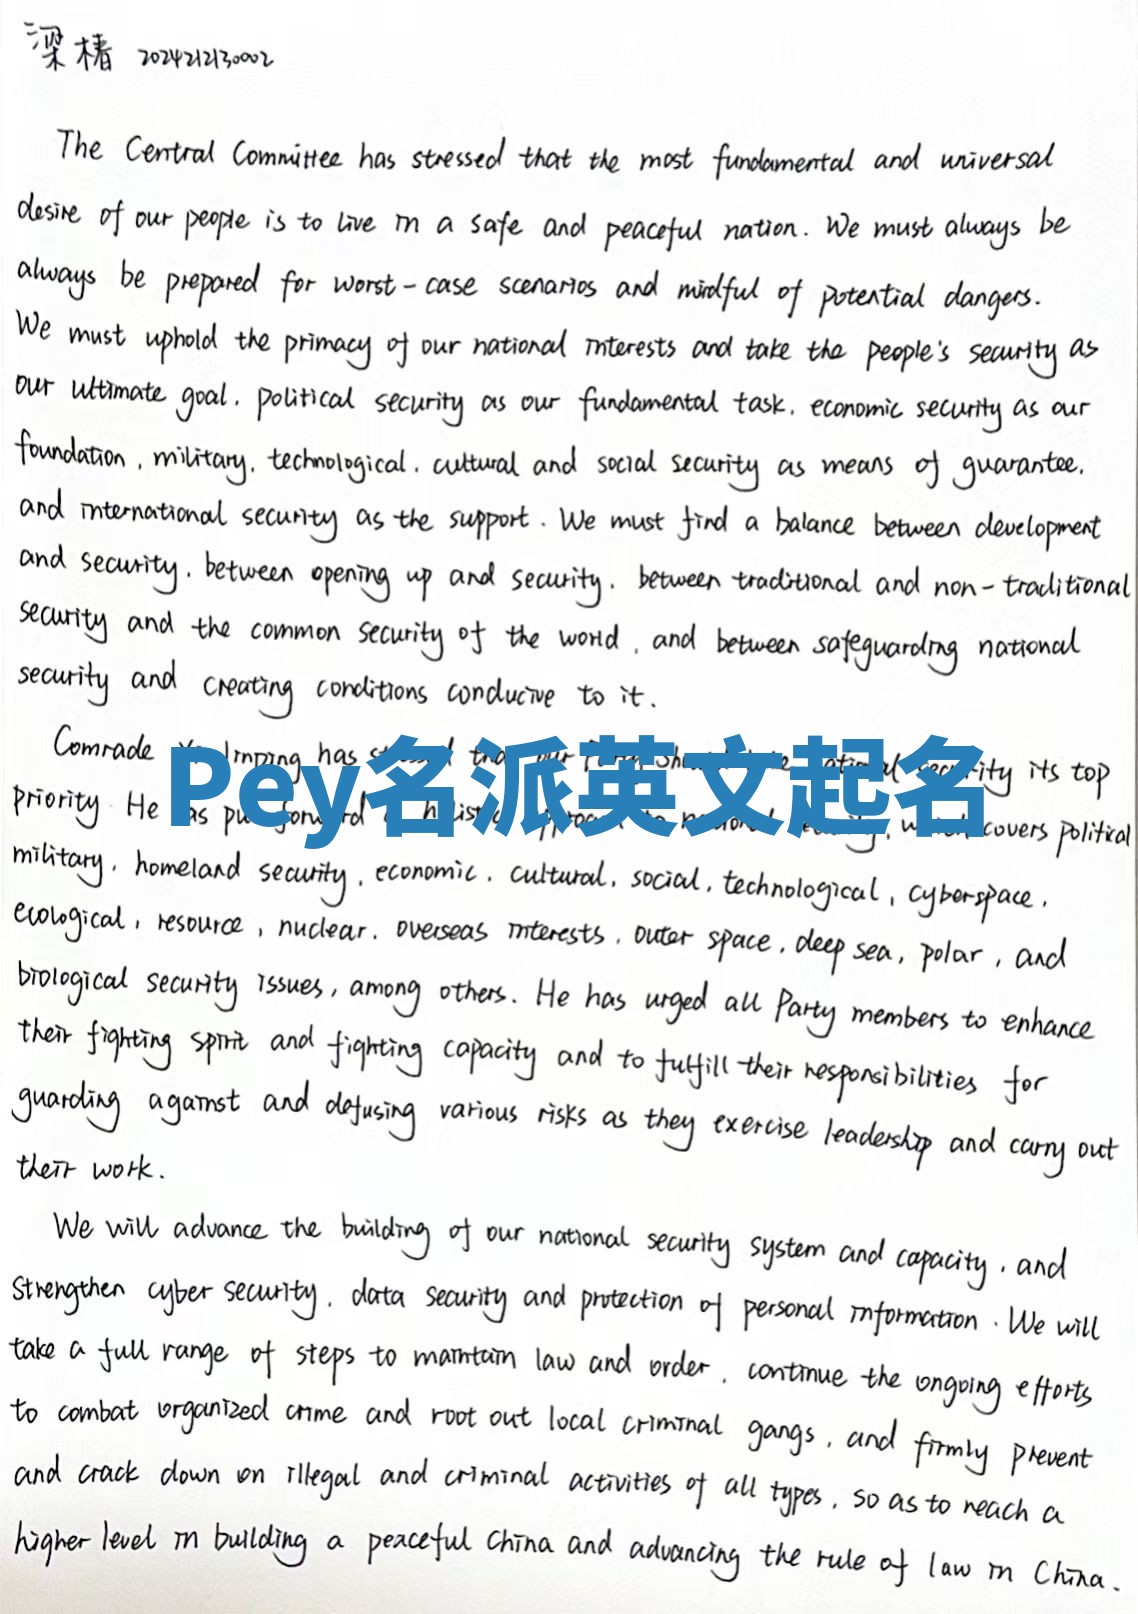 梁椿 2024212130002
The Central Committee has stressed that the most fundamental and universal
desire of our people is to live in a safe and peaceful nation. We must always be
always be prepared for worst-case scenarios and mindful of potential dangers.
We must uphold the primacy of our national interests and take the people's security as
our ultimate goal, political security as our fundamental task, economic security as our
foundation, military, technological, cultural and social security as means of guarantee,
and international security as the support. We must find a balance between development
and security, between opening up and security, between traditional and non-traditional
security and the common security of the world, and between safeguarding national
security and creating conditions conducive to it.
Comrade has its top
Pey名派英文起名
priority. He covers political
military, homeland security, economic, cultural, social, technological, cyberspace,
ecological, resource, nuclear, overseas interests, outer space, deep sea, polar, and
biological security issues, among others. He has urged all Party members to enhance
their fighting spirit and fighting capacity and to fulfill their responsibilities for
guarding against and defusing various risks as they exercise leadership and carry out
their work.
We will advance the building of our national security system and capacity, and
strengthen cyber security, data security and protection of personal information. We will
take a full range of steps to maintain law and order, continue the ongoing efforts
to combat organized crime and root out local criminal gangs, and firmly prevent
and crack down on illegal and criminal activities of all types, so as to reach a
higher level in building a peaceful China and advancing the rule of law in China.